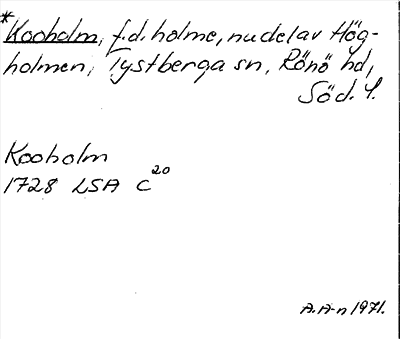 *Kooholm, f.d. holme, nu del av Hög-
holmen, Tystberga sn, Rönö hd,
Söd. l.
Kooholm
1728 LSA C20
A.A-n 1971.